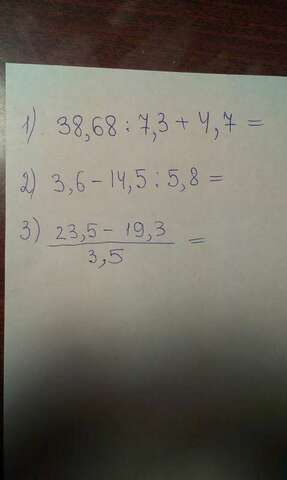 1). 38,68 : 7,3 + 4,7 =
2) 3,6 - 14,5 : 5,8 =
3) 23,5 - 19,3
3,5 =